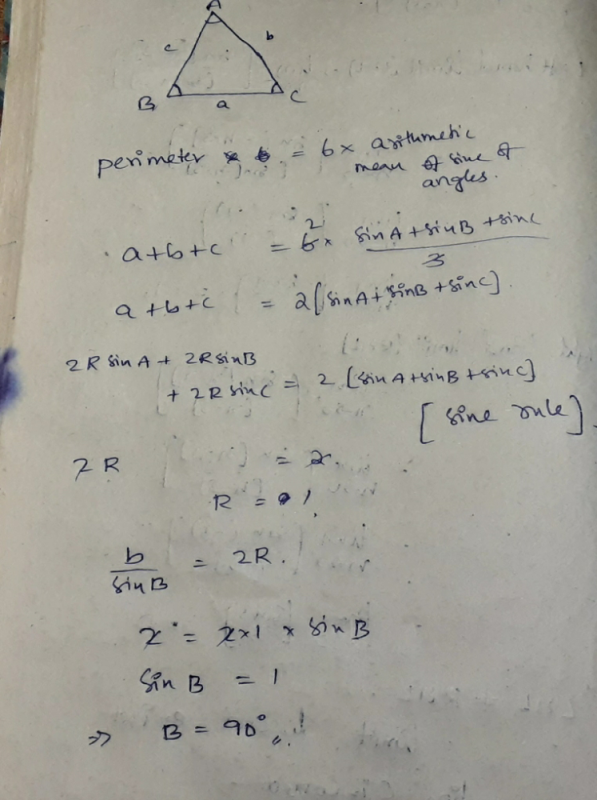 A
c b
B a C
perimeter = 6 x arithmetic
mean of sine of
angles.
a+b+c = 6² x sinA + sinB + sinC / 3
a+b+c = 2[sinA + sinB + sinC]
2R sinA + 2R sinB
+ 2R sinC = 2 [sinA + sinB + sinC]
[sine rule]
2R = 2.
R = 1.
b / sinB = 2R.
2 = 2x1 x sinB
sinB = 1
⇒ B = 90°